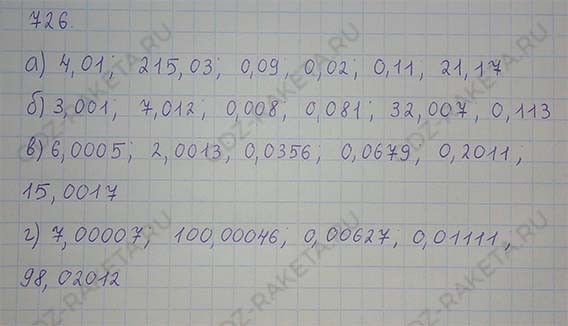 726.
а) 4,01; 215,03; 0,09; 0,02; 0,11; 21,17
б) 3,001; 7,012; 0,008; 0,081; 32,007, 0,113
в) 6,0005; 2,0013, 0,0356; 0,0679, 0,2011;
15,0017
г) 7,00007; 100,00046; 0,00627, 0,01111,
98,02012
GDZ-RAKETA.RU